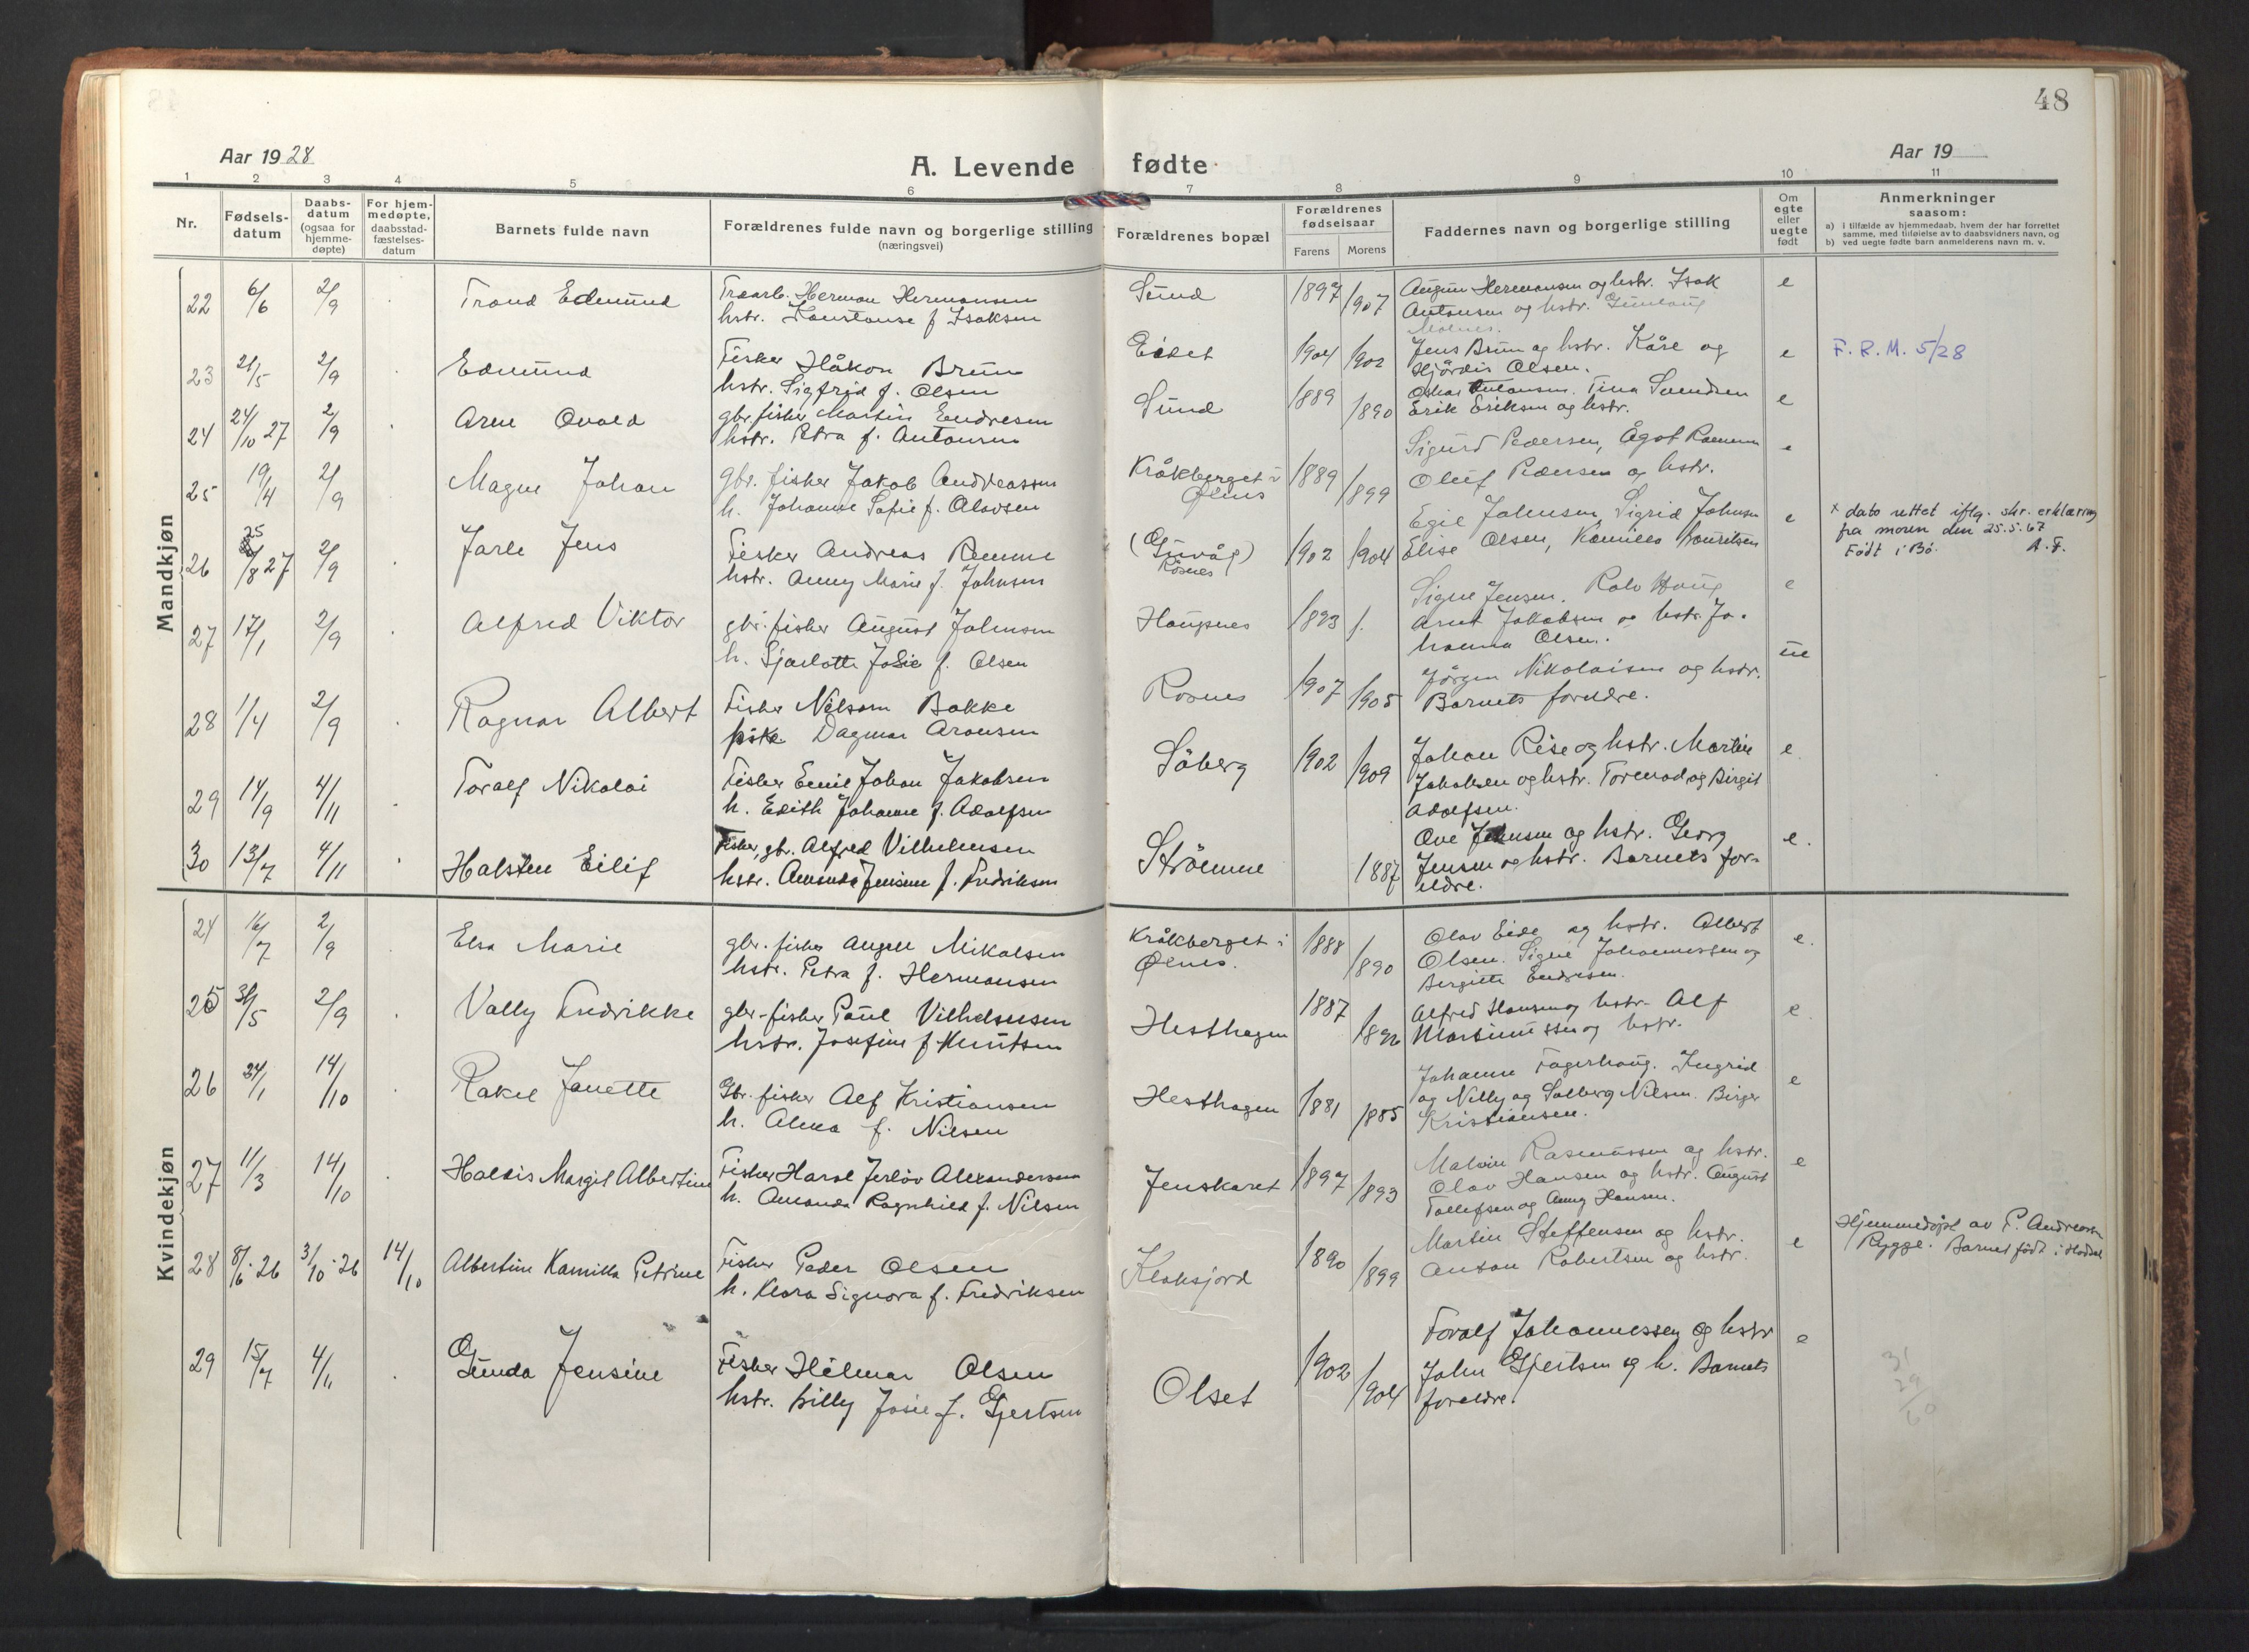 48
Aar 1928
A. Levende fødte
Aar 19
1 2 3 4 5 6 7 8 9 10 11
Nr.
Fødsels-
datum
Daabs-
datum
(ogsaa for
hjemme-
døpte)
For hjem-
medøpte,
daabsstad-
fæstelses-
datum
Barnets fulde navn
Forældrenes fulde navn og borgerlige stilling
(næringsvei)
Forældrenes bopæl
Forældrenes
fødselsaar
Farens Morens
Faddernes navn og borgerlige stilling
Om
egte
eller
uegte
født
Anmerkninger
saasom:
a) i tilfælde av hjemmedaab, hvem der har forrettet
samme, med tilføielse av to daabsvidners navn, og
b) ved uegte fødte barn anmelderens navn m. v.
Mandkjøn
22 6/6 2/9 Trond Edmund
Herman Hermansen
hstr. Konstanse f Isaksen
Sund 1897 1907
Hermansen og hstr. Isak
Antonsen og hstr.
e
23 21/5 2/9 Edmund
Fisker Håkon Brun
hstr. Sigfrid f. Olsen
Eidet 1904 1902
Jens Brun og hstr. Kåre og
Hjördis Olsen.
e F. R. M. 5/28
24 24/10 27 2/9 Arne Ovald
gbr. fisker Martin Endresen
hstr. Petra f. Antonsen
Sund 1889 1890
Oskar Antonsen. Tina
Erik Eriksen og hstr.
e
25 19/4 2/9 Magne Johan
gbr. fisker Jakob Andreassen
h. Johanne Sofie f. Olavsen
Kråkberget i
Øines
1889 1899
Sigurd Pedersen, Ågot
Oluf Pedersen og hstr.
e
26 25/8 27 2/9 Jarle Jens
Fisker Andreas Remme
hstr. Anny Marie f. Johnsen
(Guvåg)
Røsnes
1902 1904
Egil Johnsen, Sigrid Johnsen
Elise Olsen,
e
x dato rettet iflg. skr. erklæring
fra moren den 25.5.67
Født i Bö. A.F.
27 17/1 2/9 Alfred Viktor
gbr. fisker August Johnsen
h. Sjarlotte Josie f. Olsen
Haugsnes 1893
Signe Jensen. Rolv Haug
Arnt Jakobsen og hstr. Jo-
hanna Olsen.
e
28 1/4 2/9 Ragnar Albert
Fisker Nilsson Bakke
pike Dagmar Aronsen
Rosnes 1907 1905
Jörgen Nikolaisen og hstr.
Barnets foreldre.
ue
29 14/9 4/11 Toralf Nikolai
Fisker Emil Johan Jakobsen
h. Edith Johanne f. Adolfsen
Söberg 1902 1909
Johan Rise og hstr. Martin
Jakobsen og hstr. Tormod og Birgit
Adolfsen.
e
30 13/7 4/11 Halsten Eilif
Fisker, gbr. Alfred Vilhelmsen
hstr. Amanda Jensine f. Fredriksen
Strömme 1887
Ove Johnsen og hstr. Georg
Jensen og hstr. Barnets for-
eldre.
e.
Kvindekjøn
24 16/7 2/9 Elsa Marie
gbr. fisker Angell Mikalsen
hstr. Petra f. Hermansen
Kråkberget i
Øines.
1888 1890
Olav Eide og hstr. Albert
Olsen. Signe Johannessen og
Birgitte Endresen.
e.
25 31/5 2/9 Vally Fredrikke
gbr-fisker Paul Vilhelmsen
hstr. Josefine f Knutsen
Hesthagen 1887
Alfred Hansen og hstr. Alf
Martinussen og hstr.
e.
26 24/1 14/10 Rakel Janette
Gbr. fisker Alf Kristiansen
h. Alma f. Nilsen
Hesthagen 1881 1885
Johanne Fagerhaug. Ingrid
og Nilly og Solberg Nilsen. Birger
Kristiansen.
e
27 11/3 14/10 Haldis Margit Albertine
Fisker Harol Jerlöv Alexandersen
h. Amanda Ragnhild f. Nilsen
Jenskaret 1897 1893
Malvin Rasmussen og hstr.
Olav Hansen og hstr. August
Tollefsen og Anny Hansen.
e
28 8/6-26 3/10-26 14/10 Albertine Kamilla Petrine
Fisker Peder Olsen
h. Klara Signora f. Fredriksen
Klaksjord 1890 1899
Martin Steffensen og hstr.
Anton Robertsen og hstr.
e
Hjemmedöpt av P. Andreassen
Rygge. Barnet födt i Hadsel
29 15/7 4/11 Gunda Jensine
Fisker Hilmar Olsen
hstr. Lilly Josie f. Gjertsen
Olset 1902 1904
Toralf Johannessen og hstr
John Gjertsen og h. Barnets
foreldre.
e
31
29
60